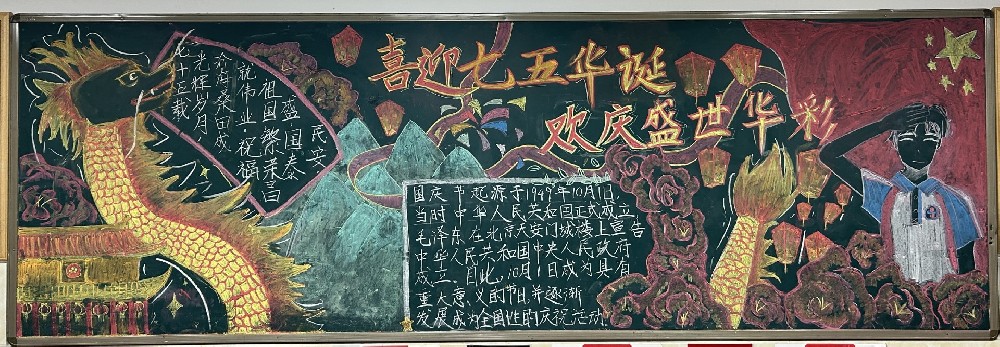 喜迎七五华诞
欢庆盛世华彩
七十五载
光辉岁月,
沧海桑田成
就伟业,祝福
祖国繁荣昌
盛国泰
民安
国庆节起源于1949年10月1日
当时中华人民共和国正式成立
毛泽东在北京天安门城楼上宣告
中华人民共和国中央人民政府
成立.自此,10月1日成为具有
重大意义的节日,并逐渐
发展成为全国性的庆祝活动.